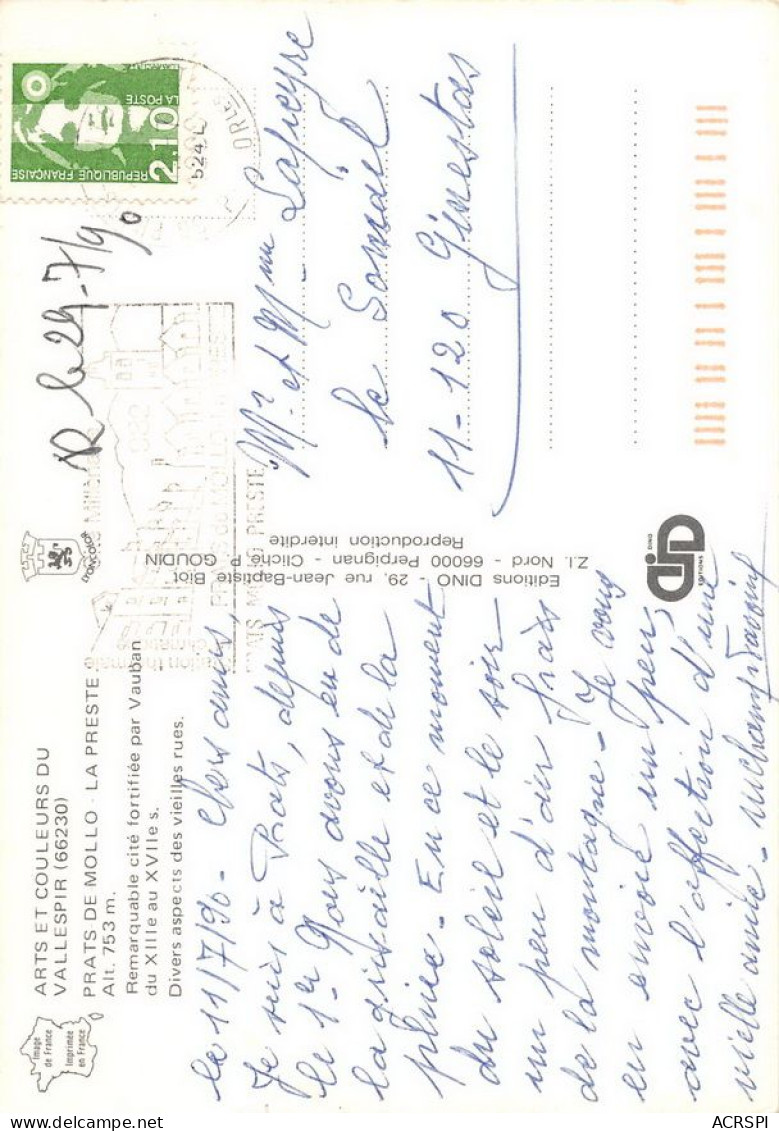 Image
de France
Imprimée
en France
ARTS ET COULEURS DU
VALLESPIR (66230)
PRATS DE MOLLO - LA PRESTE
Alt. 753 m.
Remarquable cité fortifiée par Vauban
du XIIIe au XVIIe s.
Divers aspects des vieilles rues.
le 11/7/90 - Chers amis,
Je suis à Prats, depuis
le 1er Nous avons eu de
la grisaille et de la
pluie - En ce moment
du soleil et le soir
un peu d'air frais
de la montagne - Je vous
en envoie un peu,
avec l'affection d'une
vieille amie -
LYONCOLOR
Editions DINO - 29, rue Jean-Baptiste Biot
Z.I. Nord - 66000 Perpignan - Cliché P. GOUDIN
Reproduction interdite
DINO
EDITIONS
R le 29-7/90
PRATS MOLLO LA PRESTE
2.10
REPUBLIQUE FRANÇAISE
LA POSTE
Mr et Mme Lapeyre
le Somail
11-120 Ginestas
ACRSPI